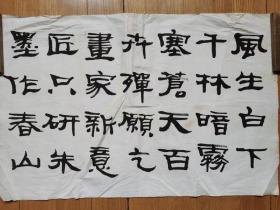 風生白下
千林暗霧
塞蒼天百
卉殫願乞
畫家新意
匠只研朱
墨作春山